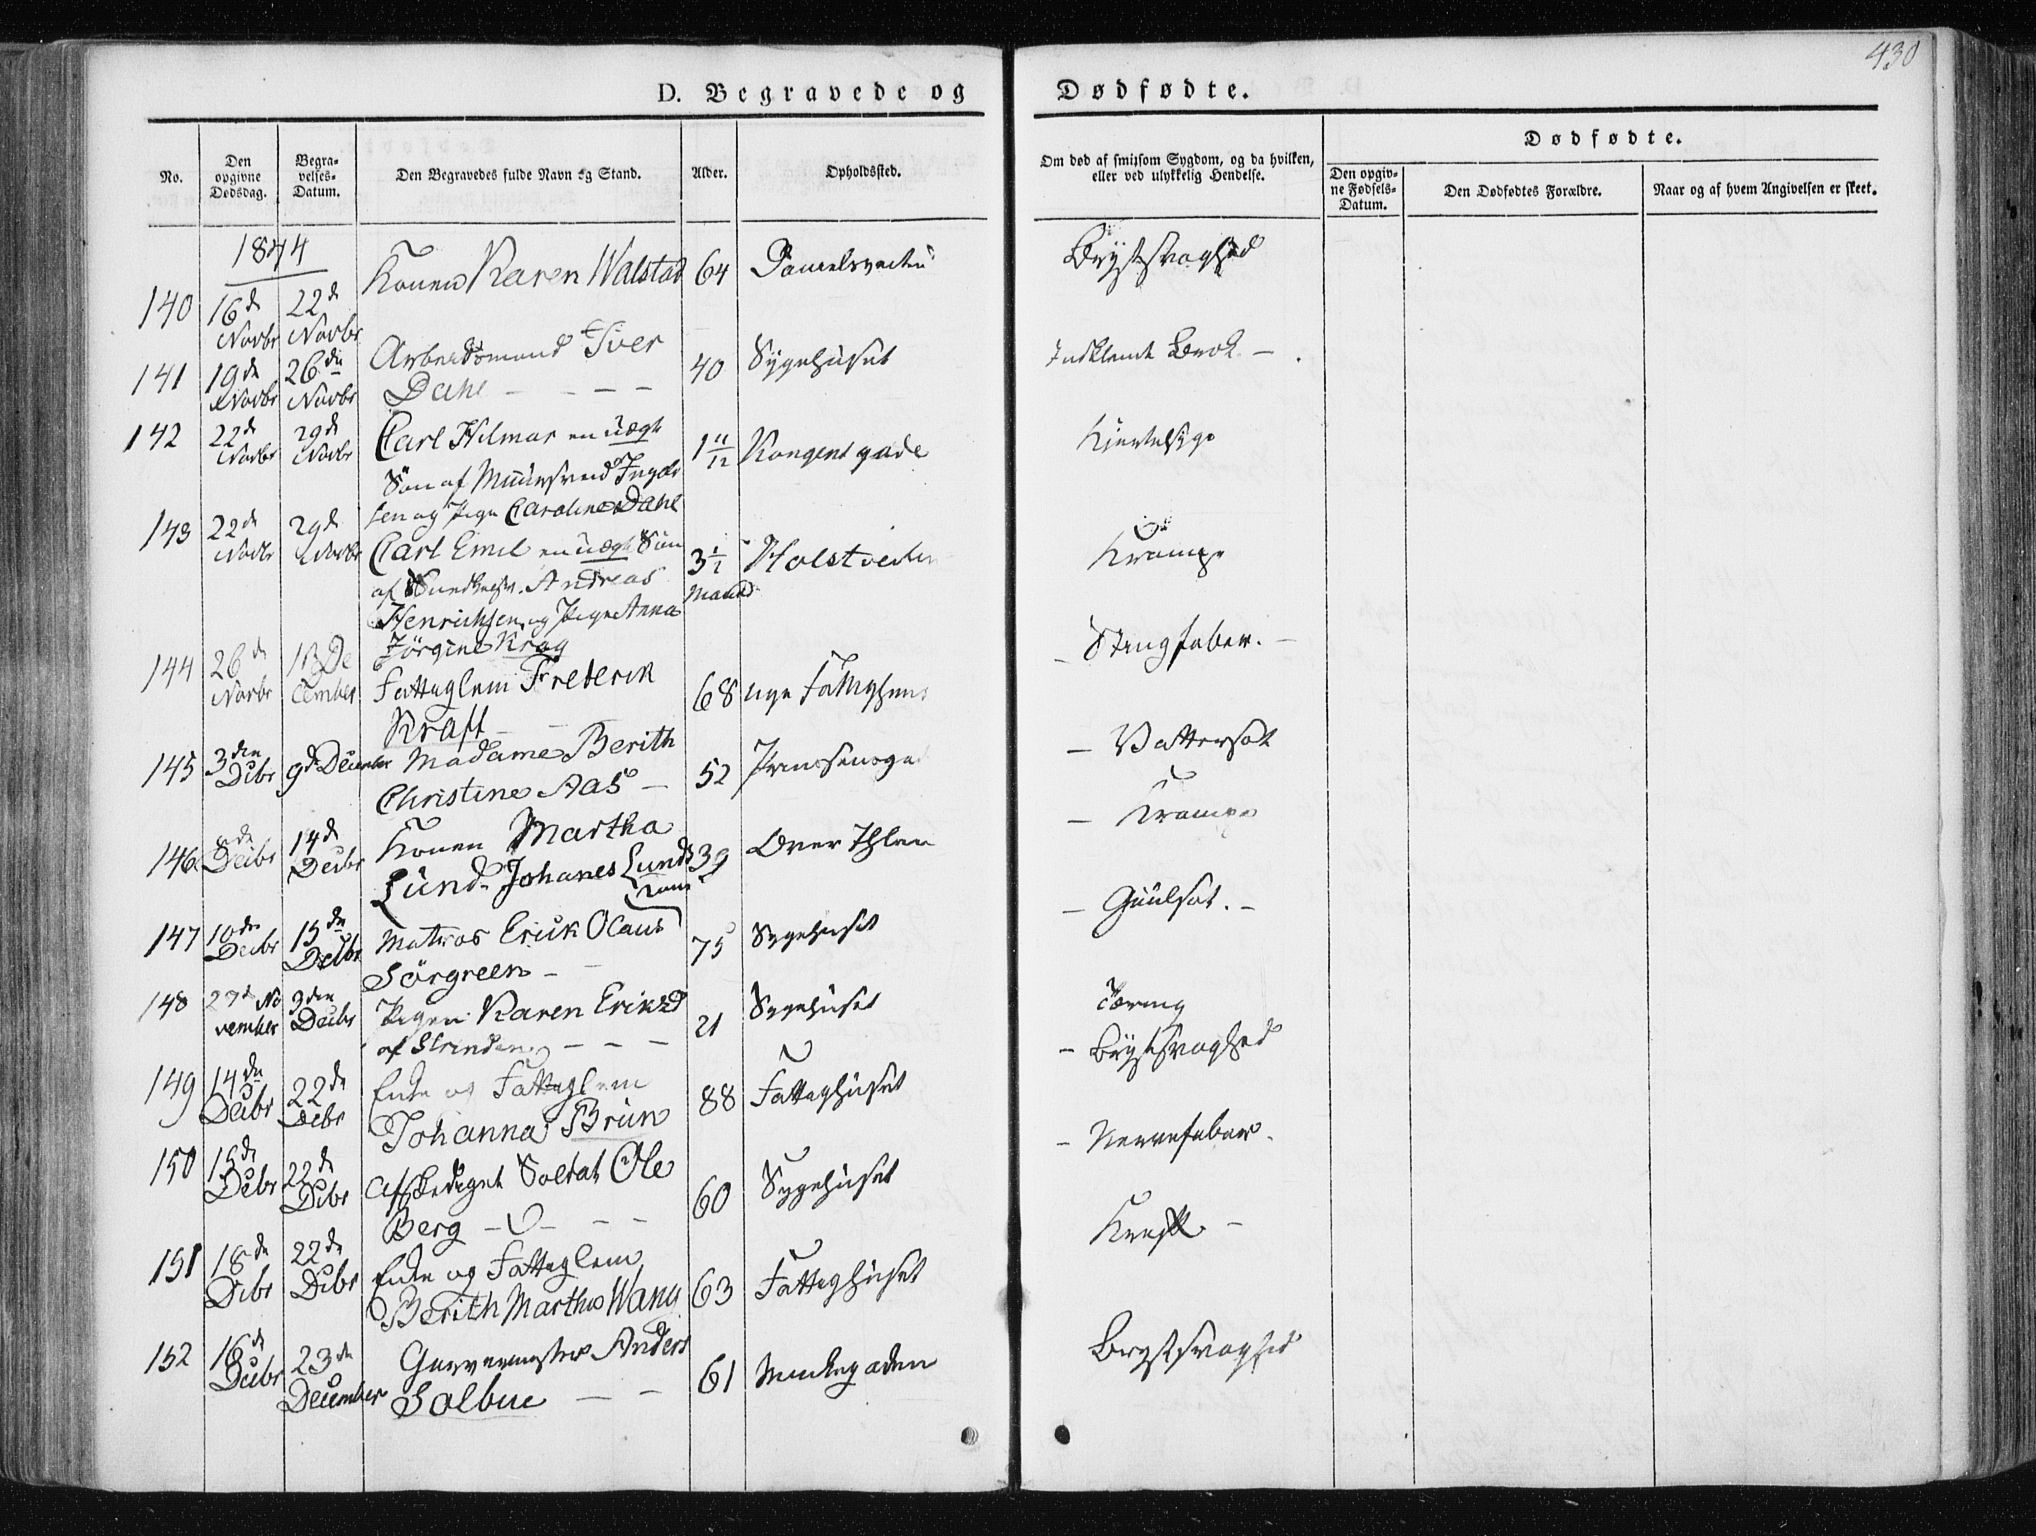 430
D. Begravede og Dødfødte.
No.
Den opgivne Dødsdag.
Begravelses-Datum.
Den Begravedes fulde Navn og Stand.
Alder.
Opholdssted.
Om død af smitsom Sygdom, og da hvilken, eller ved ulykkelig Hendelse.
Dødfødte.
Den opgivne Fødsels-Datum.
Den Dødfødtes Forældre.
Naar og af hvem Angivelsen er skeet.
1844
140 16d Novbr 22d Novbr Konen Karen Walstad 64 Brystsvaghed
141 19d Novbr 26de Novbr Arbeidsmand Iver
Dahl 40 Sygehuset Indklemt Brok
142 22d Novbr 29d Novbr Carl Hilmar en uægt
Søn af Muursvend
sen og Pige Caroline Dahl 1 11/12 Kongensgade Kjertelsyge
143 22d Novbr 29d Novbr Carl Emil en uægte Søn
af Andreas
Henrichsen og Pige Anna
Jörgine Krag 3 1/2 Maaned Krampe
144 26d Novbr 1st December Fattiglem Frederik
Kraft 68 Stingfeber.
145 3den Decbr 9d December Madame Berith
Christine Aas 52 Prinsensgade Vattersot
146 8de Decbr 14d Decbr Konen Martha
Lund Johanes Lunds
Kone 39 Over Ihlen Krampe
147 10de Decbr 15de Decbr Matros Erick Olaus
Sörgreen 75 Sygehuset Guulsot.
148 27d November 3den Decbr Pigen Karen Eriksd
af Strinden 21 Sygehuset Tæring
149 14de Decbr 22de Decbr Enke og Fattiglem
Johanna Brun 88 Fattighuset Brystsvaghed
150 15de Decbr 22de Decbr Afskediget Soldat Ole
Berg 60 Sygehuset Nervefeber.
151 18de Decbr 22de Decbr Enke og Fattiglem
Berith Martha Wang 63 Fattighuset Kræft
152 16d Decbr 23de December Garvermester Anders
Solbue 61 Munkegaden Brystsvaghed